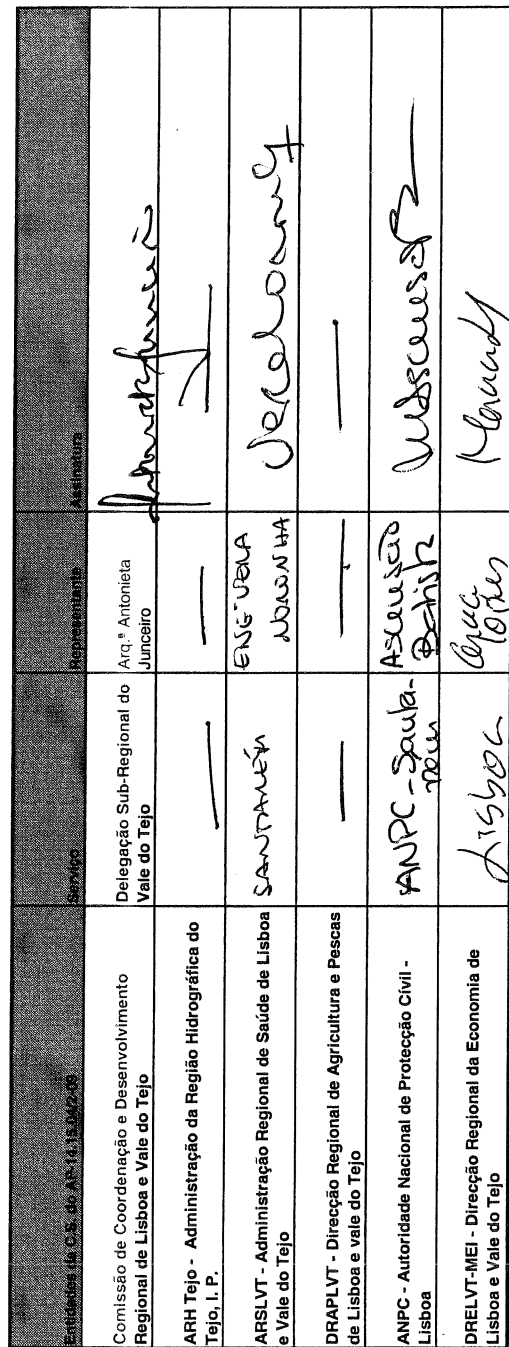 Entidades da C.S. do AP-14.15.04/2-09 Serviço Representante Assinatura
Comissão de Coordenação e Desenvolvimento
Regional de Lisboa e Vale do Tejo
Delegação Sub-Regional do
Vale do Tejo
Arq.ª Antonieta
Junceiro
ARH Tejo - Administração da Região Hidrográfica do
Tejo, I. P.
ARSLVT - Administração Regional de Saúde de Lisboa
e Vale do Tejo
SANTARÉM
ENGª VERA
NORONHA
DRAPLVT - Direcção Regional de Agricultura e Pescas
de Lisboa e vale do Tejo
ANPC - Autoridade Nacional de Protecção Cívil -
Lisboa
ANPC - Santa-
rém
Ascensão
Batista
DRELVT-MEI - Direcção Regional da Economia de
Lisboa e Vale do Tejo
Lisboa
Lopes